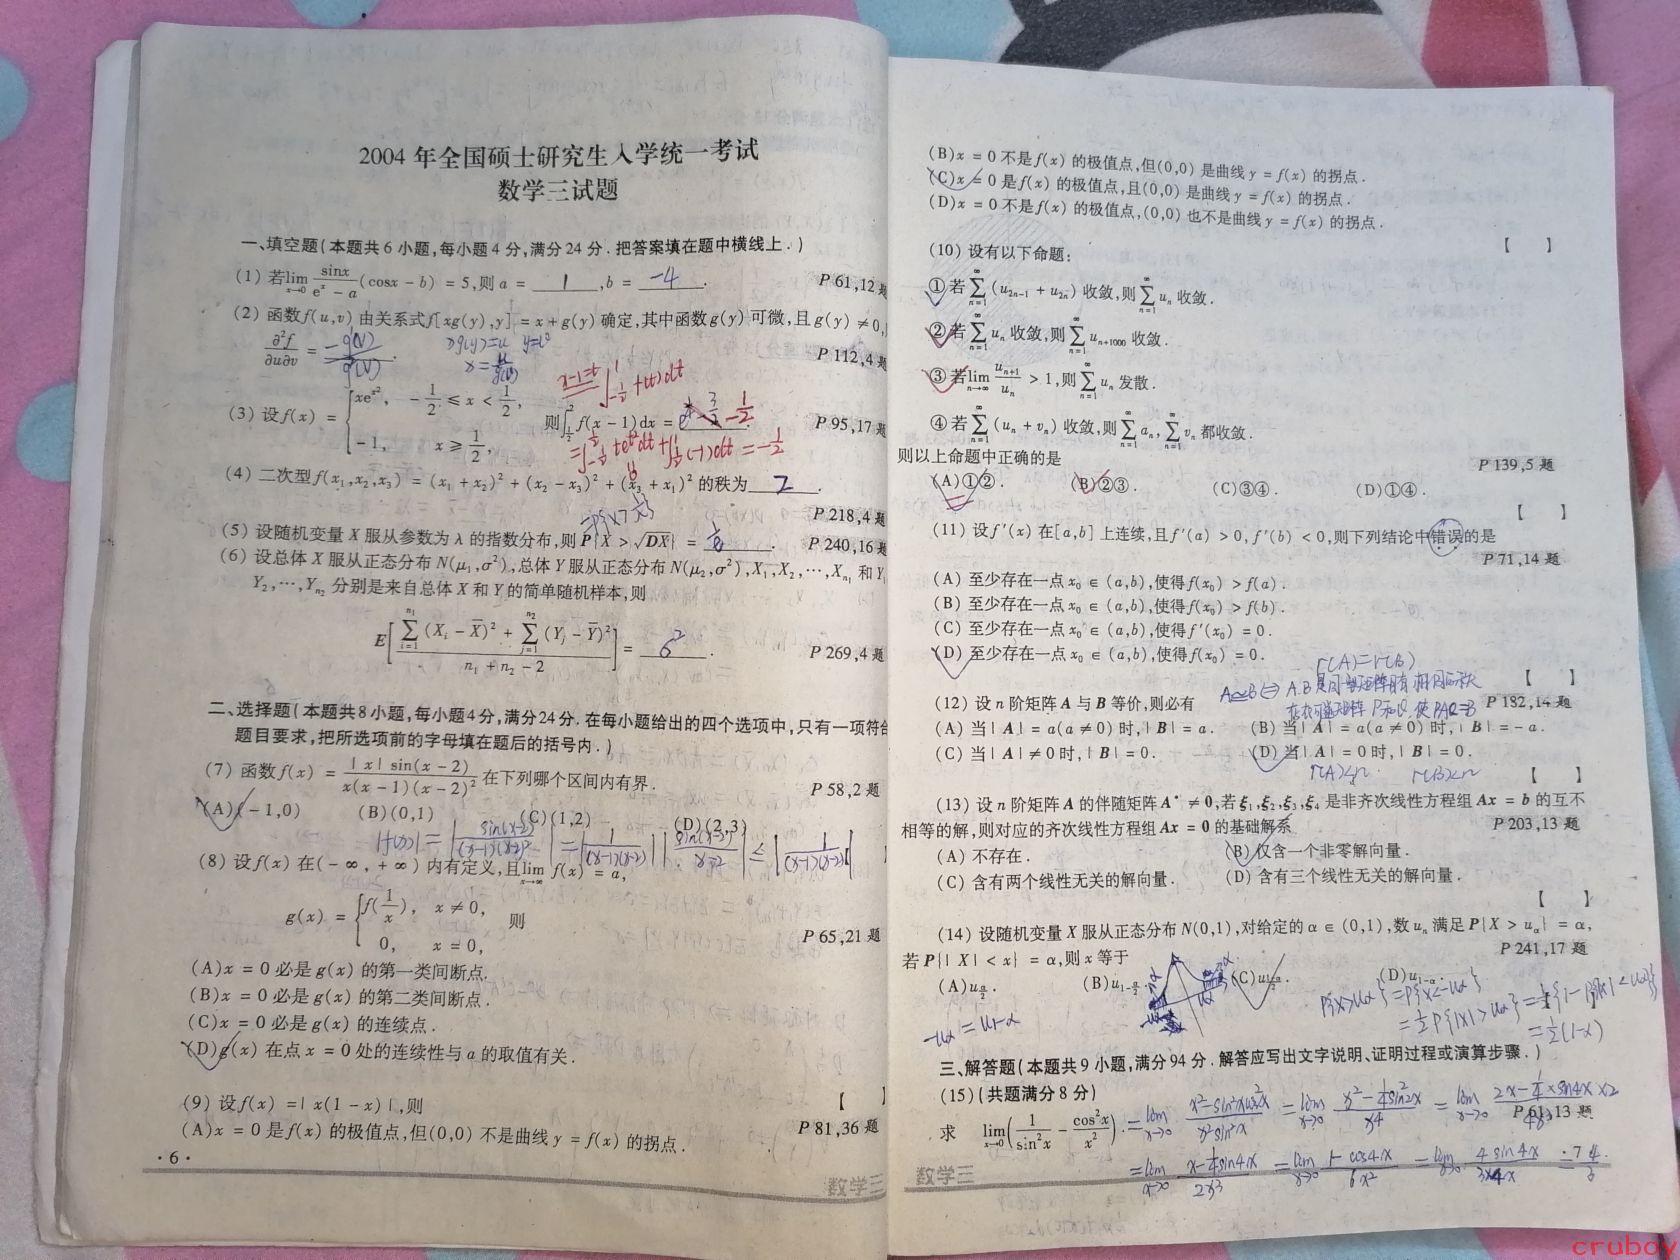 2004 年全国硕士研究生入学统一考试
数学三试题
一、填空题(本题共 6 小题,每小题 4 分,满分 24 分.把答案填在题中横线上.)
(1) 若lim_{x→0} sinx/(e^x − a) (cosx − b) = 5,则 a = 1 ,b = −4 .
P 61,12
(2) 函数 f(u,v) 由关系式 f[xg(y),y] = x + g(y) 确定,其中函数 g(y) 可微,且 g(y) ≠ 0,
∂²f/∂u∂v = −g'(v)/g²(v) .
xg(y)=u y=v
x=u/g(v)
P 112,4 题
(3) 设 f(x) = { xe^{x²}, −1/2 ≤ x < 1/2, −1, x ≥ 1/2, 则∫_{1/2}^{2} f(x − 1)dx = −1/2
x−1=t ∫_{-1/2}^{1} f(t)dt
= ∫_{-1/2}^{1/2} te^{t²}dt + ∫_{1/2}^{1} (−1)dt = −1/2
P 95,17 题
(4) 二次型 f(x₁,x₂,x₃) = (x₁ + x₂)² + (x₂ − x₃)² + (x₃ + x₁)² 的秩为 2 .
P 218,4 题
(5) 设随机变量 X 服从参数为 λ 的指数分布,则 P{X > √DX} = 1/e .
=P{X>1/λ}
P 240,16 题
(6) 设总体 X 服从正态分布 N(μ₁,σ²),总体 Y 服从正态分布 N(μ₂,σ²),X₁,X₂,…,X_{n₁} 和 Y₁
Y₂,…,Y_{n₂} 分别是来自总体 X 和 Y 的简单随机样本,则
E[ (∑_{i=1}^{n₁} (X_i − X̄)² + ∑_{j=1}^{n₂} (Y_j − Ȳ)²) / (n₁ + n₂ − 2) ] = σ² .
P 269,4 题
二、选择题(本题共8小题,每小题4分,满分24分.在每小题给出的四个选项中,只有一项符合
题目要求,把所选项前的字母填在题后的括号内.)
(7) 函数 f(x) = |x| sin(x − 2) / x(x − 1)(x − 2)² 在下列哪个区间内有界.
P 58,2 题
(A)(−1,0) (B)(0,1) (C)(1,2) (D)(2,3)
|f(x)| = |sin(x−2)/(x−1)(x−2)²| = |1/(x−1)(x−2)| |sin(x−2)/x−2| ≤ |1/(x−1)(x−2)|
(8) 设 f(x) 在(−∞,+∞) 内有定义,且lim_{x→∞} f(x) = a,
g(x) = { f(1/x), x ≠ 0, 0, x = 0, 则
P 65,21 题
(A)x = 0 必是 g(x) 的第一类间断点.
(B)x = 0 必是 g(x) 的第二类间断点.
(C)x = 0 必是 g(x) 的连续点.
(D)g(x) 在点 x = 0 处的连续性与 a 的取值有关.
【 】
(9) 设 f(x) =| x(1 − x) |,则
P 81,36 题
(A)x = 0 是 f(x) 的极值点,但(0,0) 不是曲线 y = f(x) 的拐点.
· 6 ·
数学三
(B)x = 0 不是 f(x) 的极值点,但(0,0) 是曲线 y = f(x) 的拐点.
(C)x = 0 是 f(x) 的极值点,且(0,0) 是曲线 y = f(x) 的拐点.
(D)x = 0 不是 f(x) 的极值点,(0,0) 也不是曲线 y = f(x) 的拐点.
【 】
(10) 设有以下命题:
①若∑_{n=1}^{∞} (u_{2n−1} + u_{2n}) 收敛,则∑_{n=1}^{∞} u_n 收敛.
②若∑_{n=1}^{∞} u_n 收敛,则∑_{n=1}^{∞} u_{n+1000} 收敛.
③若lim_{n→∞} u_{n+1}/u_n > 1,则∑_{n=1}^{∞} u_n 发散.
④若∑_{n=1}^{∞} (u_n + v_n) 收敛,则∑_{n=1}^{∞} a_n,∑_{n=1}^{∞} v_n 都收敛.
则以上命题中正确的是
P 139,5 题
(A)①②. (B)②③. (C)③④. (D)①④.
【 】
(11) 设 f′(x) 在[a,b] 上连续,且 f′(a) > 0, f′(b) < 0,则下列结论中错误的是
P 71,14 题
(A) 至少存在一点 x₀ ∈ (a,b),使得 f(x₀) > f(a).
(B) 至少存在一点 x₀ ∈ (a,b),使得 f(x₀) > f(b).
(C) 至少存在一点 x₀ ∈ (a,b),使得 f′(x₀) = 0.
(D) 至少存在一点 x₀ ∈ (a,b),使得 f(x₀) = 0.
【 】
r(A)=r(B)
(12) 设 n 阶矩阵 A 与 B 等价,则必有
A≃B ⇔ A.B是同型矩阵且有相同的秩
存在可逆矩阵 P和Q,使PAQ=B
P 182,14 题
(A) 当 | A | = a(a ≠ 0) 时,| B | = a. (B) 当 | A | = a(a ≠ 0) 时,| B | = − a.
(C) 当 | A | ≠ 0 时,| B | = 0. (D) 当 | A | = 0 时,| B | = 0.
r(A)<n. r(B)<n
【 】
(13) 设 n 阶矩阵 A 的伴随矩阵 A* ≠ 0,若 ξ₁,ξ₂,ξ₃,ξ₄ 是非齐次线性方程组 Ax = b 的互不
相等的解,则对应的齐次线性方程组 Ax = 0 的基础解系
P 203,13 题
(A) 不存在. (B) 仅含一个非零解向量.
(C) 含有两个线性无关的解向量. (D) 含有三个线性无关的解向量.
【 】
(14) 设随机变量 X 服从正态分布 N(0,1),对给定的 α ∈ (0,1),数 u_α 满足 P{X > u_α} = α,
P 241,17 题
若 P{| X | < x} = α,则 x 等于
(A)u_{α/2}. (B)u_{1−α/2}. (C)u_{(1−α)/2}. (D)u_{1−α}.
−uα = u1−α
P{X>uα}=P{X<−uα}
=½P{|X|>uα}=½{1−P{|X|<uα}}
=½(1−α)
三、解答题(本题共 9 小题,满分 94 分.解答应写出文字说明、证明过程或演算步骤.)
(15)(共题满分 8 分)
P 61,13 题
求 lim_{x→0}(1/sin²x − cos²x/x²). = lim_{x→0} (x²−sin²xcos²x)/(x²sin²x) = lim_{x→0} (x²−¼sin²2x)/x⁴ = lim_{x→0}
= lim_{x→0} (x−¼sin4x)/2x³ = lim_{x→0} (1−cos4x)/6x² = lim_{x→0} 4sin4x/3×4x = 4/3.
数学三
cruboy